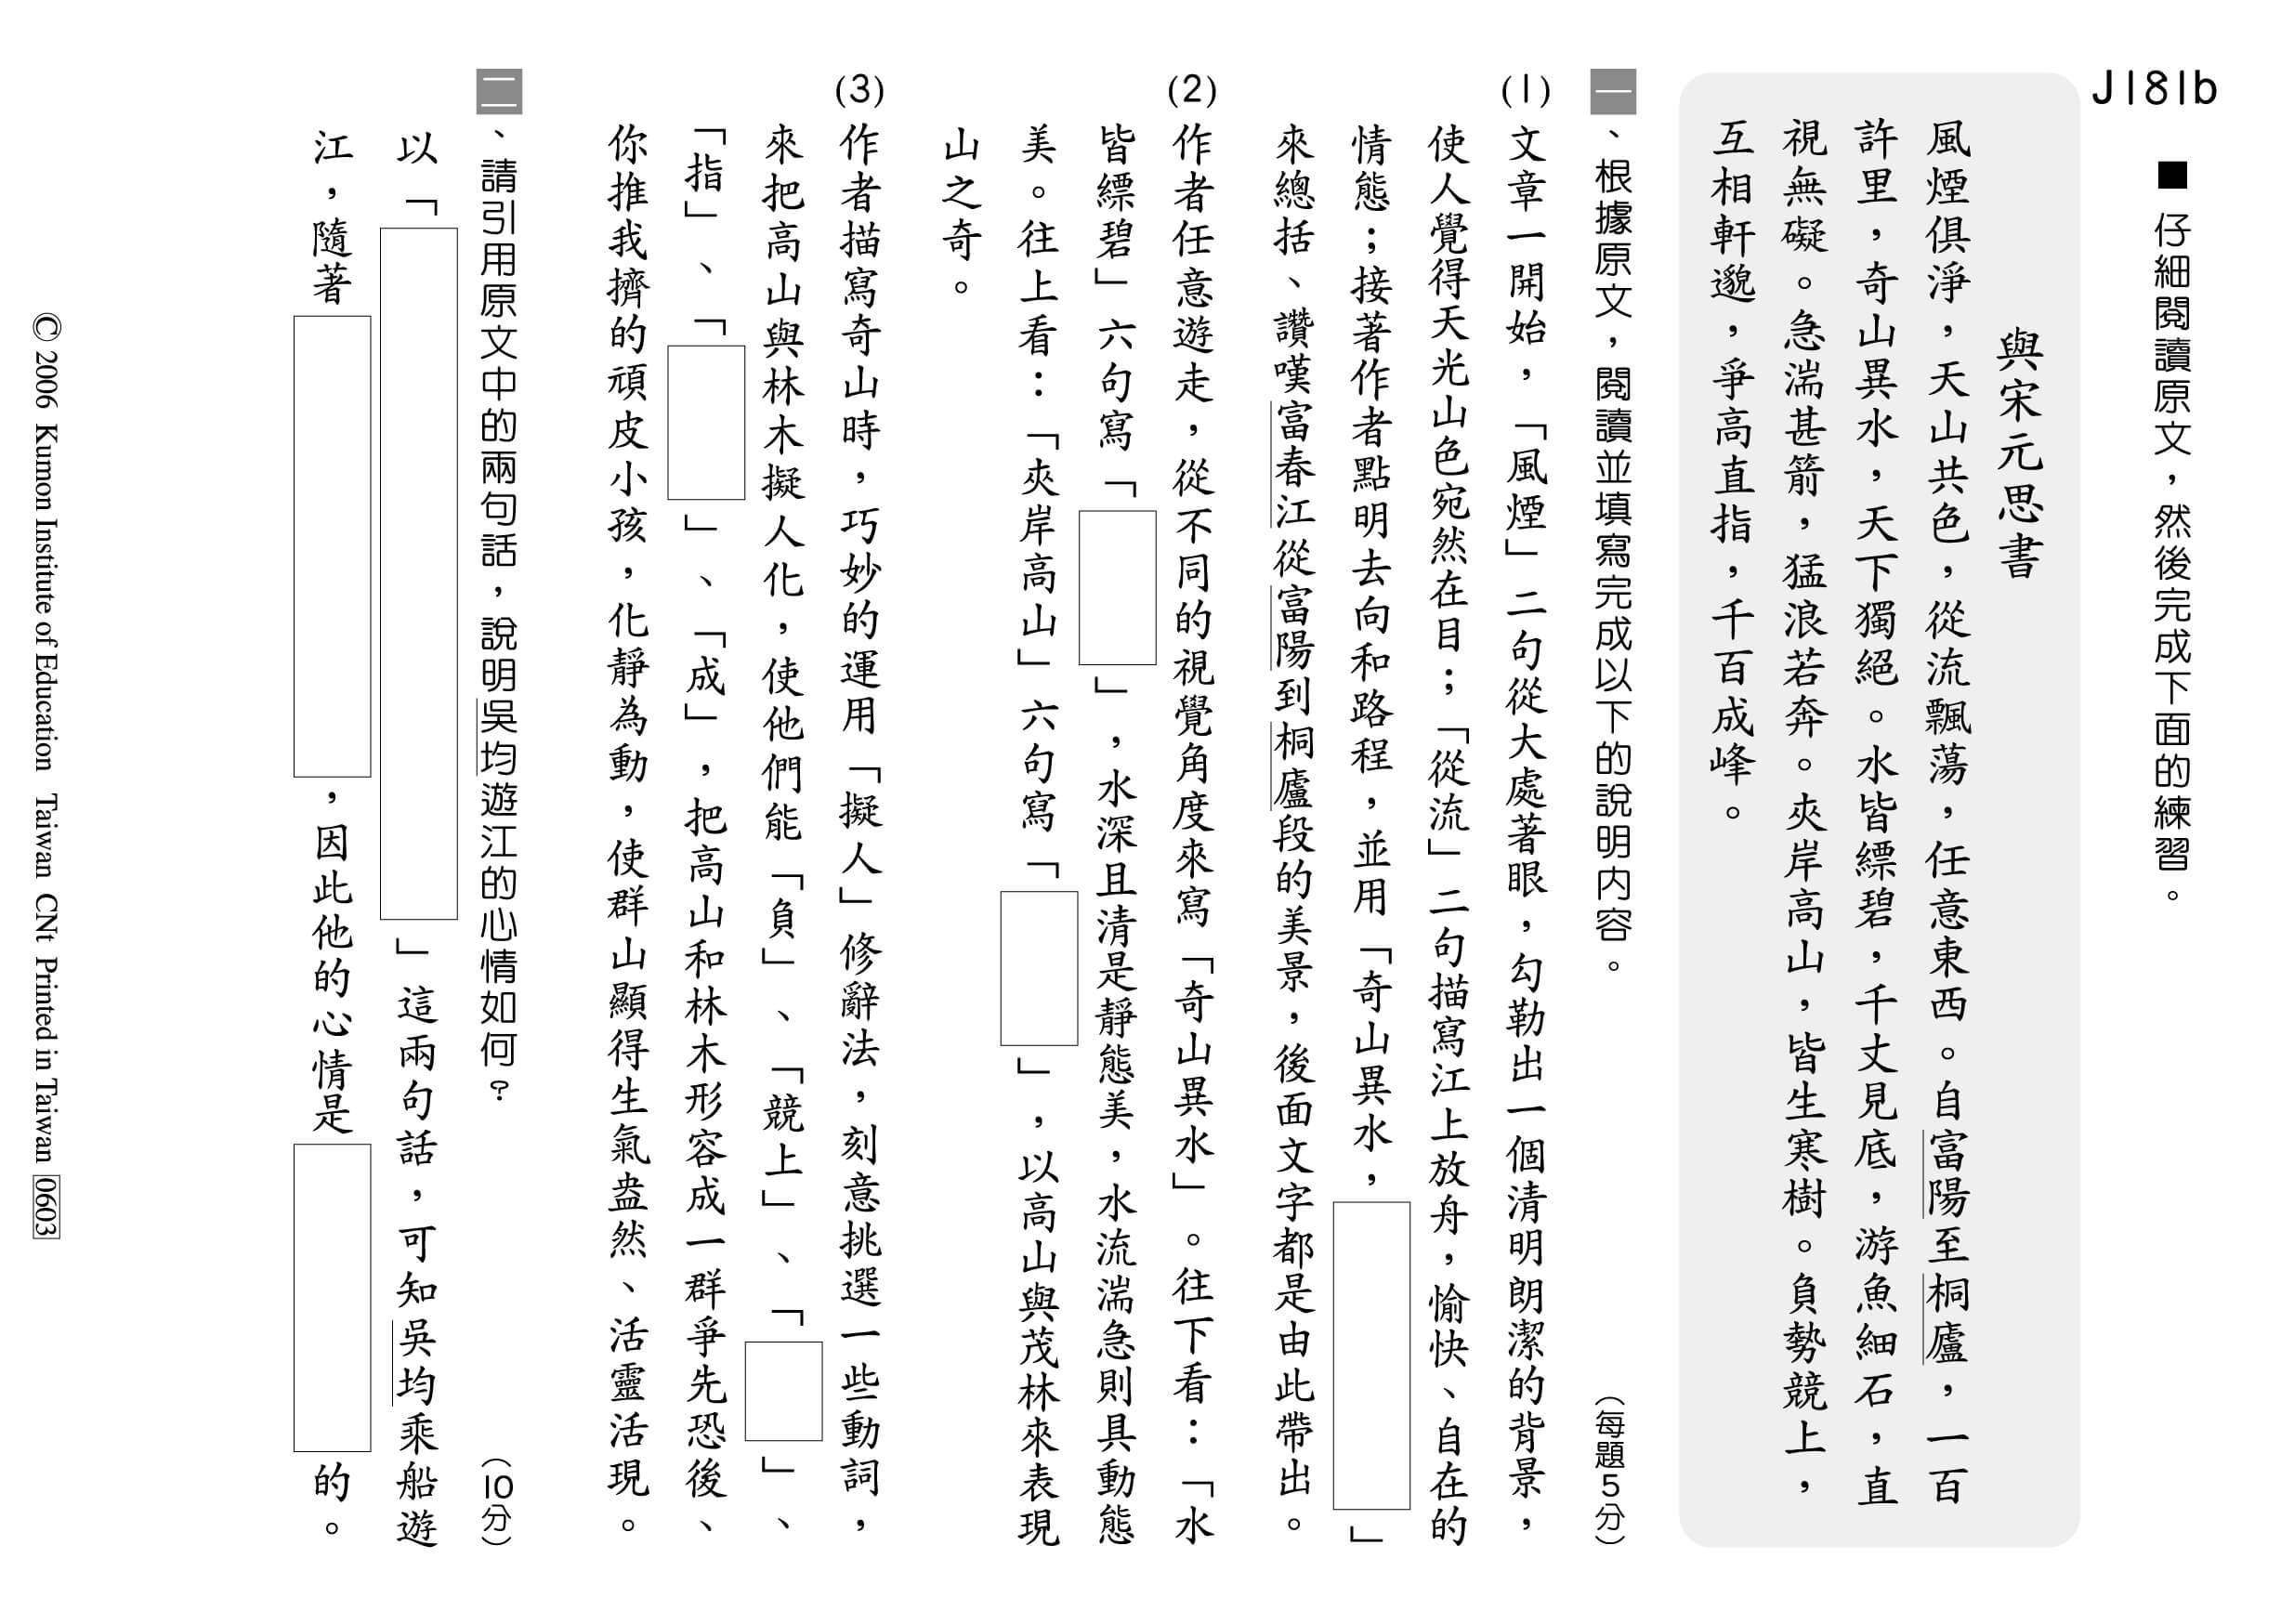 J181b
■ 仔細閱讀原文，然後完成下面的練習。
與宋元思書
風煙俱淨，天山共色，從流飄蕩，任意東西。自富陽至桐廬，一百
許里，奇山異水，天下獨絕。水皆縹碧，千丈見底，游魚細石，直
視無礙。急湍甚箭，猛浪若奔。夾岸高山，皆生寒樹。負勢競上，
互相軒邈，爭高直指，千百成峰。
一、根據原文，閱讀並填寫完成以下的說明內容。（每題5分）
(1) 文章一開始，「風煙」二句從大處著眼，勾勒出一個清明朗潔的背景，
使人覺得天光山色宛然在目；「從流」二句描寫江上放舟，愉快、自在的
情態；接著作者點明去向和路程，並用「奇山異水，」
來總括、讚嘆富春江從富陽到桐廬段的美景，後面文字都是由此帶出。
(2) 作者任意遊走，從不同的視覺角度來寫「奇山異水」。往下看：「水
皆縹碧」六句寫「」，水深且清是靜態美，水流湍急則具動態
美。往上看：「夾岸高山」六句寫「」，以高山與茂林來表現
山之奇。
(3) 作者描寫奇山時，巧妙的運用「擬人」修辭法，刻意挑選一些動詞，
來把高山與林木擬人化，使他們能「負」、「競上」、「」、
「指」、「」、「成」，把高山和林木形容成一群爭先恐後、
你推我擠的頑皮小孩，化靜為動，使群山顯得生氣盎然、活靈活現。
二、請引用原文中的兩句話，說明吳均遊江的心情如何？（10分）
以「」這兩句話，可知吳均乘船遊
江，隨著，因此他的心情是的。
© 2006 Kumon Institute of Education Taiwan CNt Printed in Taiwan 0603